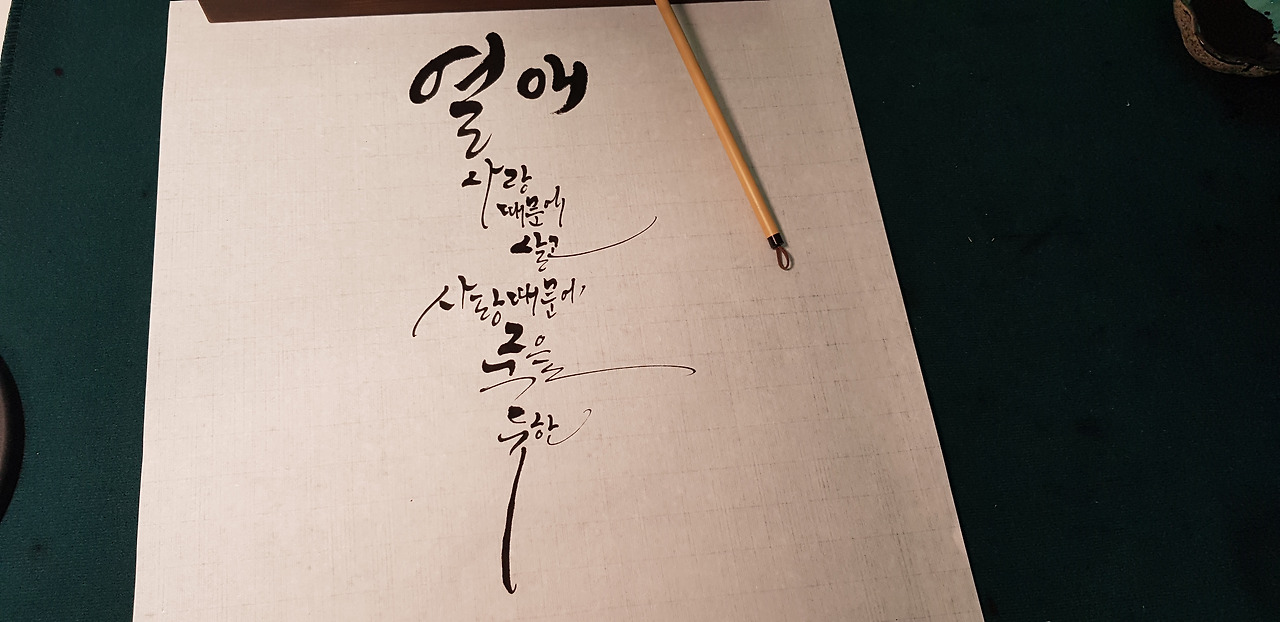 열애
사랑
때문에
살고
사랑때문에
죽을
듯한